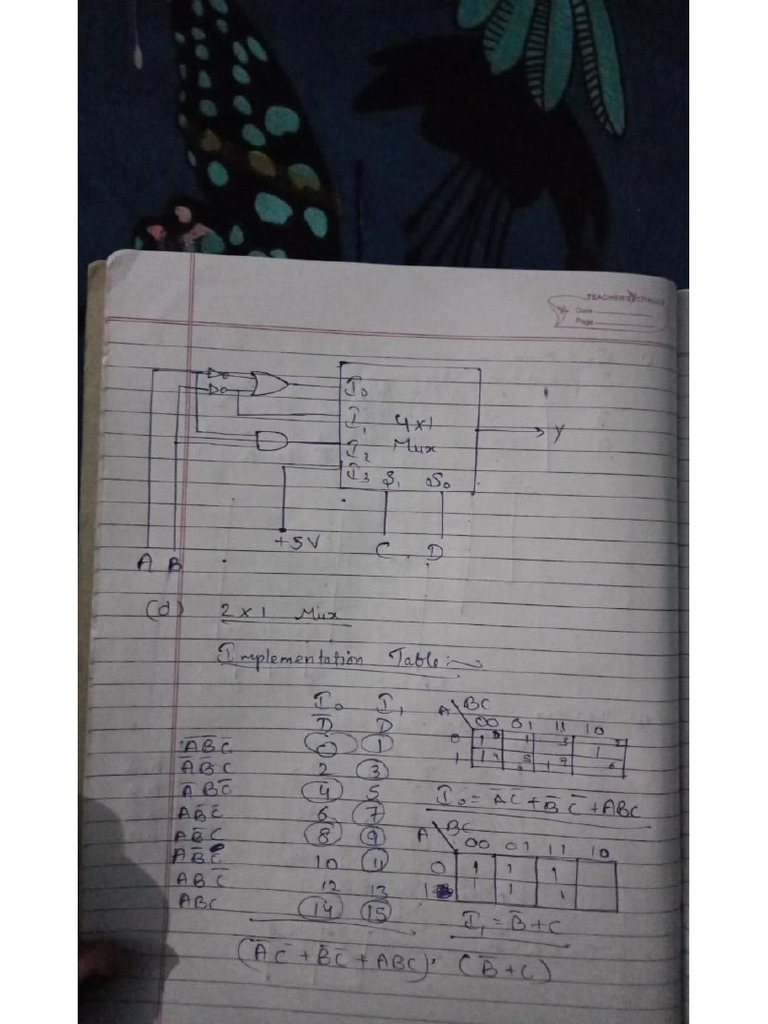 TEACHER'S
Date
Page
I₀
I₁ 4x1
I₂ Mux
I₃ S₁ S₀
Y
+5V C D
A B
(d) 2x1 Mux
Implementation Table:-
I₀ I₁
D̅ D
A̅B̅C̅ 0 1
A̅B̅C 2 3
A̅BC̅ 4 5
6 7
AB̅C̅ 8 9
10 11
ABC̅ 12 13
ABC 14 15
A BC
00 01 11 10
0 1 0 1 3 1 2
1 1 4 5 1 7 6
I₀ = A̅C̅ + B̅C̅ + ABC
A BC
00 01 11 10
0 1 1 1
1 1 1 1
I₁ = B̅ + C
(A̅C̅ + B̅C̅ + ABC) · (B̅ + C)